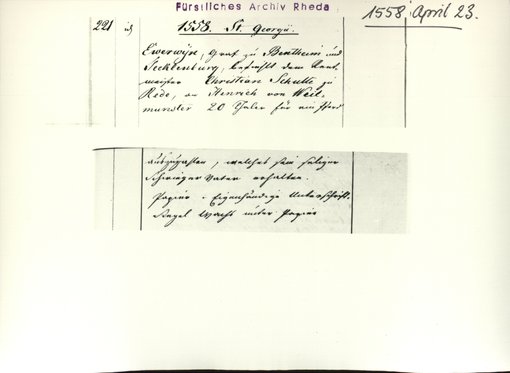 Fürstliches Archiv Rheda
1558 April 23.
221 1558. St. Georgii.
Everwyn, Graf zu Bentheim und
Tecklenburg, befiehlt dem Rent-
meister Christian Schulte zu
Rede, an Heinrich von West-
munster 20 Thaler für ein Pferd
auszuzahlen, welches sein seliger
Schwieger Vater erhalten.
Papier. Eigenhändige Unterschrift.
Siegel Wachs unter Papier